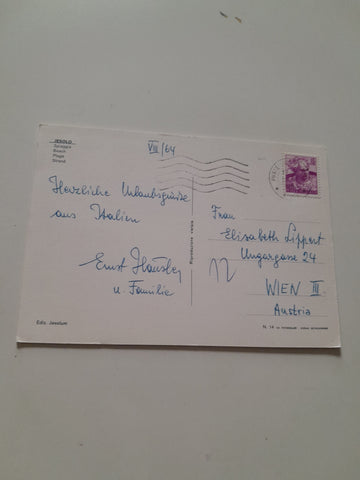 JESOLO
Spiaggia
Beach
Plage
Strand
VIII/64
Herzliche Urlaubsgrüsse
aus Italien
Ernst
u. Familie
Frau
Elisabeth Lippert
Ungargasse 24
WIEN III
Austria
Ediz. Jesolum
Riproduzione vietata
N. 14